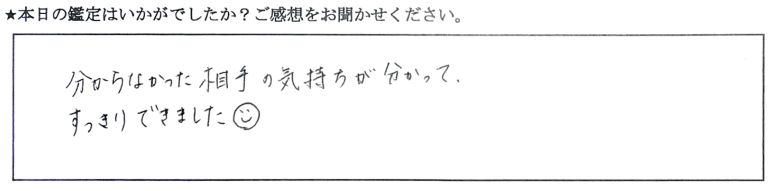 ★本日の鑑定はいかがでしたか？ご感想をお聞かせください。
分からなかった相手の気持ちが分かって、
すっきりできました☺